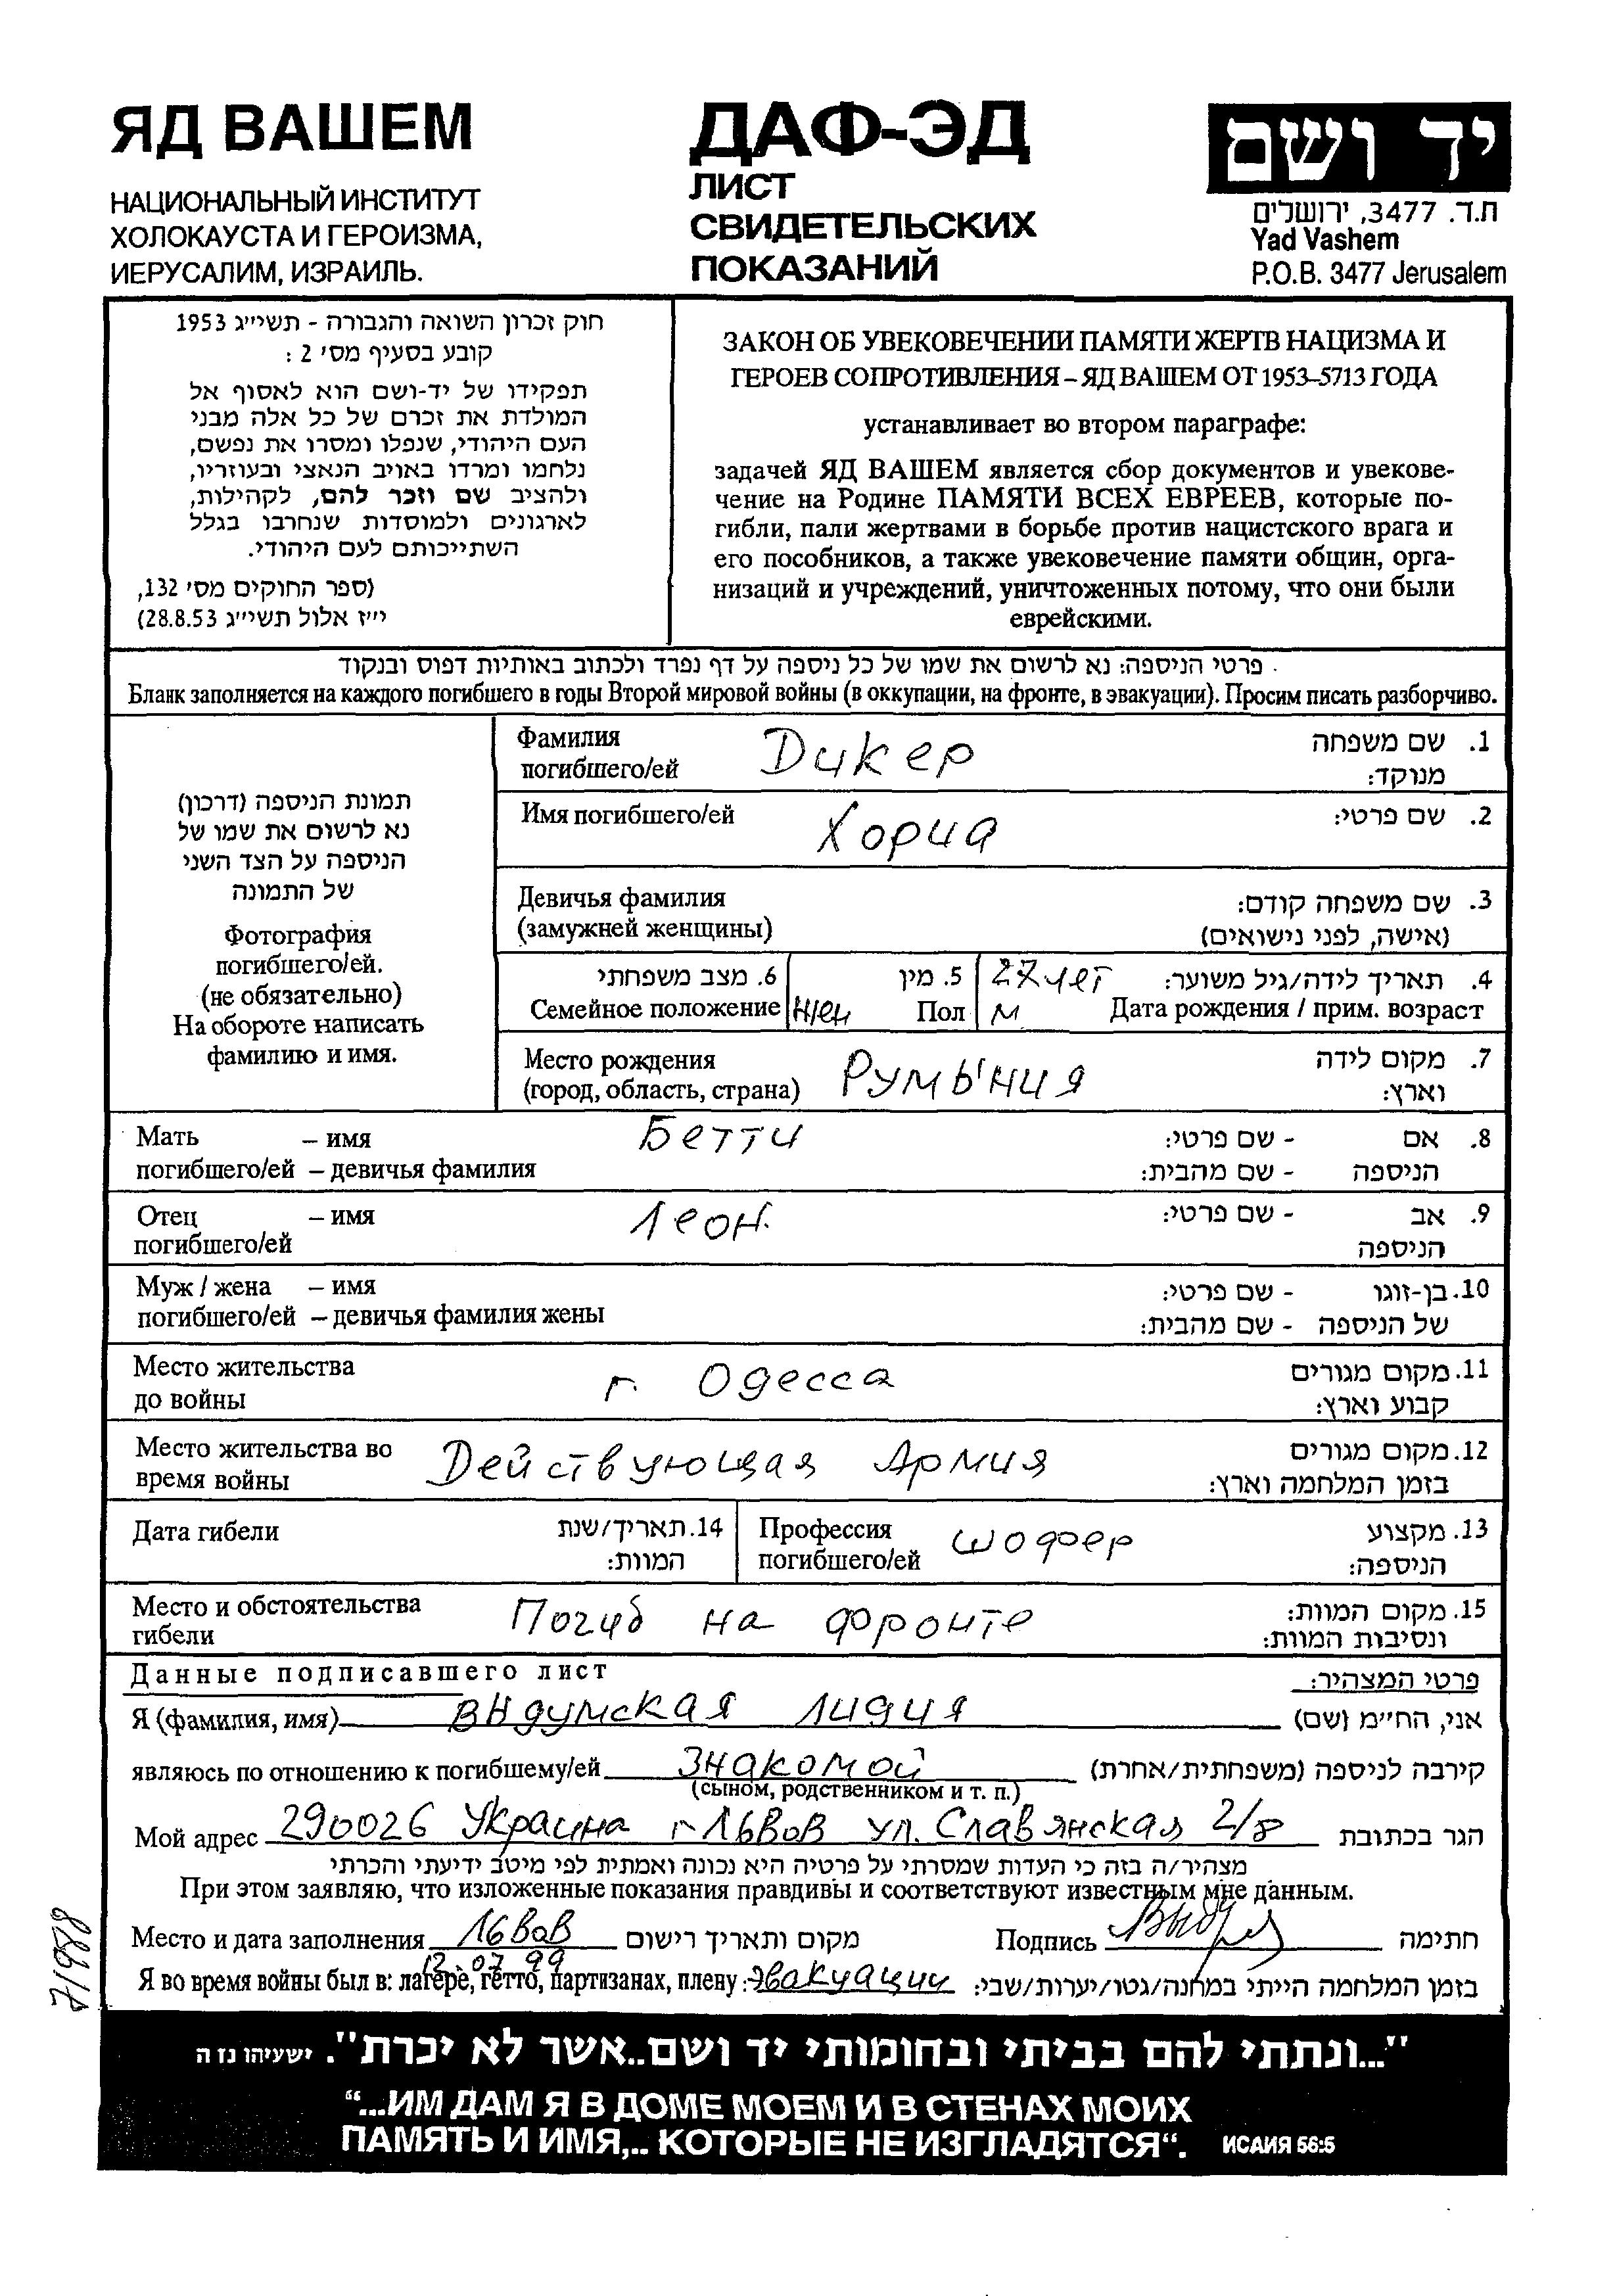 ЯД ВАШЕМ
НАЦИОНАЛЬНЫЙ ИНСТИТУТ
ХОЛОКАУСТА И ГЕРОИЗМА,
ИЕРУСАЛИМ, ИЗРАИЛЬ.
ДАФ-ЭД
ЛИСТ
СВИДЕТЕЛЬСКИХ
ПОКАЗАНИЙ
יד ושם
ת.ד. 3477, ירושלים
Yad Vashem
P.O.B. 3477 Jerusalem
חוק זכרון השואה והגבורה - תשי״ג 1953
קובע בסעיף מס׳ 2 :
תפקידו של יד-ושם הוא לאסוף אל
המולדת את זכרם של כל אלה מבני
העם היהודי, שנפלו ומסרו את נפשם,
נלחמו ומרדו באויב הנאצי ובעוזריו,
ולהציב שם וזכר להם, לקהילות,
לארגונים ולמוסדות שנחרבו בגלל
השתייכותם לעם היהודי.
(ספר החוקים מס׳ 132,
י״ז אלול תשי״ג 28.8.53)
ЗАКОН ОБ УВЕКОВЕЧЕНИИ ПАМЯТИ ЖЕРТВ НАЦИЗМА И
ГЕРОЕВ СОПРОТИВЛЕНИЯ – ЯД ВАШЕМ ОТ 1953–5713 ГОДА
устанавливает во втором параграфе:
задачей ЯД ВАШЕМ является сбор документов и увекове-
чение на Родине ПАМЯТИ ВСЕХ ЕВРЕЕВ, которые по-
гибли, пали жертвами в борьбе против нацистского врага и
его пособников, а также увековечение памяти общин, орга-
низаций и учреждений, уничтоженных потому, что они были
еврейскими.
פרטי הניספה: נא לרשום את שמו של כל ניספה על דף נפרד ולכתוב באותיות דפוס ובנקוד
Бланк заполняется на каждого погибшего в годы Второй мировой войны (в оккупации, на фронте, в эвакуации). Просим писать разборчиво.
תמונת הניספה (דרכון)
נא לרשום את שמו של
הניספה על הצד השני
של התמונה
Фотография
погибшего/ей.
(не обязательно)
На обороте написать
фамилию и имя.
Фамилия Дикер 1. שם משפחה
погибшего/ей מנוקד:
Имя погибшего/ей Хориа 2. שם פרטי:
Девичья фамилия 3. שם משפחה קודם:
(замужней женщины) (אישה, לפני נישואים)
6. מצב משפחתי 5. מין 27 лет 4. תאריך לידה/גיל משוער:
Семейное положение жен Пол м Дата рождения / прим. возраст
Место рождения Румыния 7. מקום לידה
(город, область, страна) וארץ:
Мать – имя Бетти 8. אם - שם פרטי:
погибшего/ей – девичья фамилия הניספה - שם מהבית:
Отец – имя Леон. 9. אב - שם פרטי:
погибшего/ей הניספה
Муж / жена – имя 10. בן-זוגו - שם פרטי:
погибшего/ей – девичья фамилия жены של הניספה - שם מהבית:
Место жительства г. Одесса 11. מקום מגורים
до войны קבוע וארץ:
Место жительства во Действующая Армия 12. מקום מגורים
время войны בזמן המלחמה וארץ:
Дата гибели 14. תאריך/שנת Профессия шофер 13. מקצוע
המוות: погибшего/ей הניספה:
Место и обстоятельства Погиб на фронте 15. מקום המוות:
гибели ונסיבות המוות:
Данные подписавшего лист פרטי המצהיר:
Я (фамилия, имя) Лидия אני, החי״מ (שם)
являюсь по отношению к погибшему/ей Знакомой קירבה לניספה (משפחתית/אחרת)
(сыном, родственником и т. п.)
Мой адрес 290026 Украина г. Львов ул. Славянская 2/8 הגר בכתובת
מצהיר/ה בזה כי העדות שמסרתי על פרטיה היא נכונה ואמתית לפי מיטב ידיעתי והכרתי
При этом заявляю, что изложенные показания правдивы и соответствуют известным мне данным.
Место и дата заполнения Львов מקום ותאריך רישום Подпись חתימה
12.07 99
Я во время войны был в: лагере, гетто, партизанах, плену: эвакуации בזמן המלחמה הייתי במחנה/גטו/יערות/שבי:
"...ונתתי להם בביתי ובחומותי יד ושם..אשר לא יכרת". ישעיהו נז ה
“...ИМ ДАМ Я В ДОМЕ МОЕМ И В СТЕНАХ МОИХ
ПАМЯТЬ И ИМЯ,.. КОТОРЫЕ НЕ ИЗГЛАДЯТСЯ“. ИСАИЯ 56:5